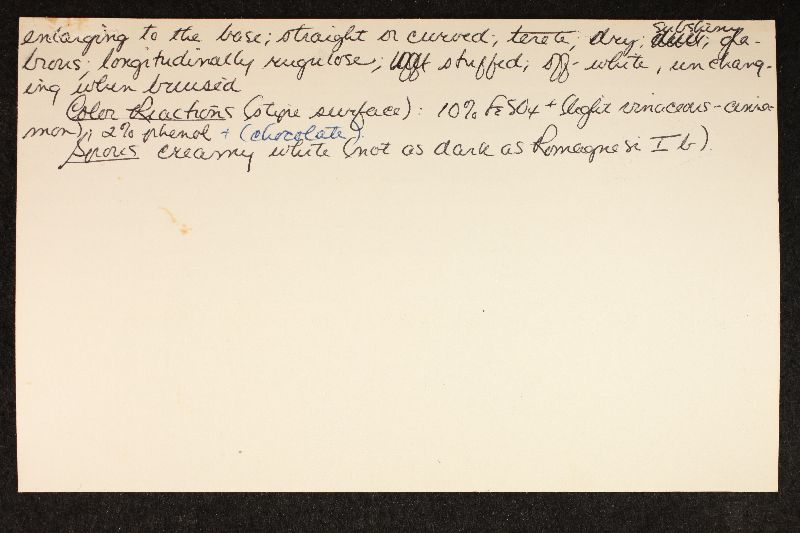 enlarging to the base; straight or curved; terete; dry; subshiny; gla-
brous; longitudinally rugulose; stuffed; off-white, unchang-
ing when bruised
Color Reactions (stipe surface): 10% FeSO4 + (light vinaceous-cinna-
mon); 2% phenol + (chocolate).
Spores creamy white (not as dark as Romagnesi I b).